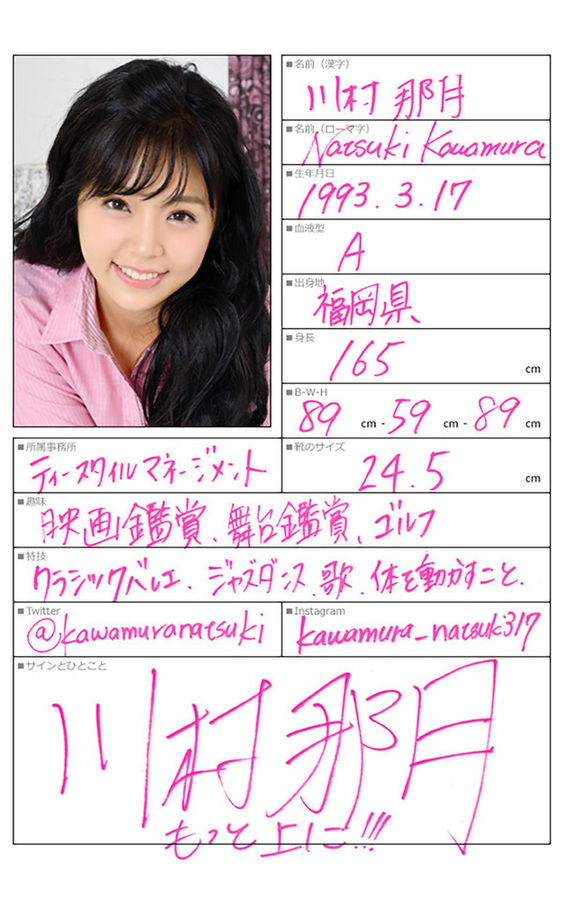 ■名前（漢字）
川村 那月
■名前（ローマ字）
Natsuki Kawamura
■生年月日
1993.3.17
■血液型
A
■出身地
福岡県
■身長
165 cm
■B-W-H
89 cm - 59 cm - 89 cm
■所属事務所
ティースタイルマネージメント
■靴のサイズ
24.5 cm
■趣味
映画鑑賞、舞台鑑賞、ゴルフ
■特技
クラシックバレエ、ジャズダンス、歌、体を動かすこと、
■Twitter
@kawamuranatsuki
■Instagram
kawamura_natsuki317
■サインとひとこと
川村那月
もっと上に!!!